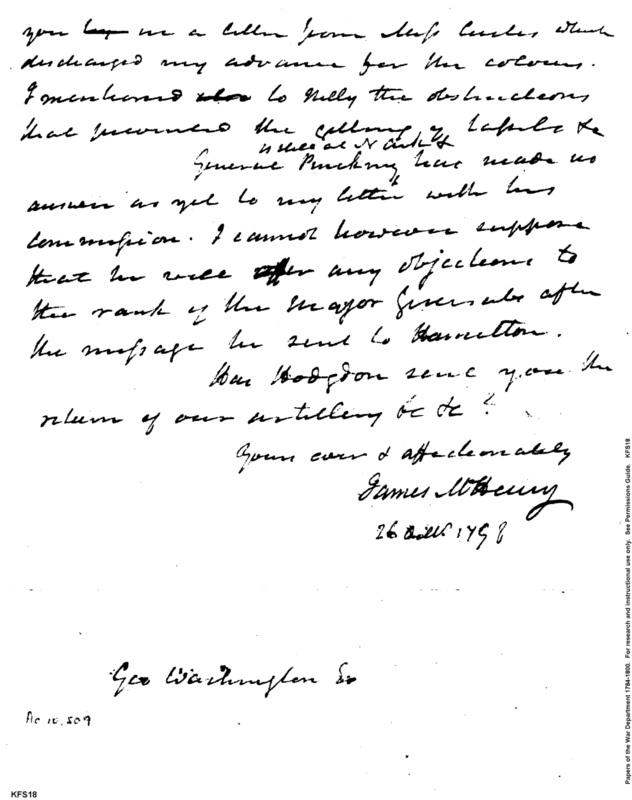 you in a letter from Miss which
discharged my advance for the colours.
I mentioned to Nelly the obstructions
that prevented the getting of &c
General Pinckney has made no
answer as yet to my letter with his
commission. I cannot however suppose
that he will offer any objections to
the rank of the Major Generals after
the message he sent to Hamilton.
Has Hodgdon sent you the
return of our artillery &c &c?
Yours ever & affectionately
James McHenry
26 1798
Geo Washington
Ac 10,509
KFS18
Papers of the War Department 1784-1800. For research and instructional use only. See Permissions Guide. KFS18